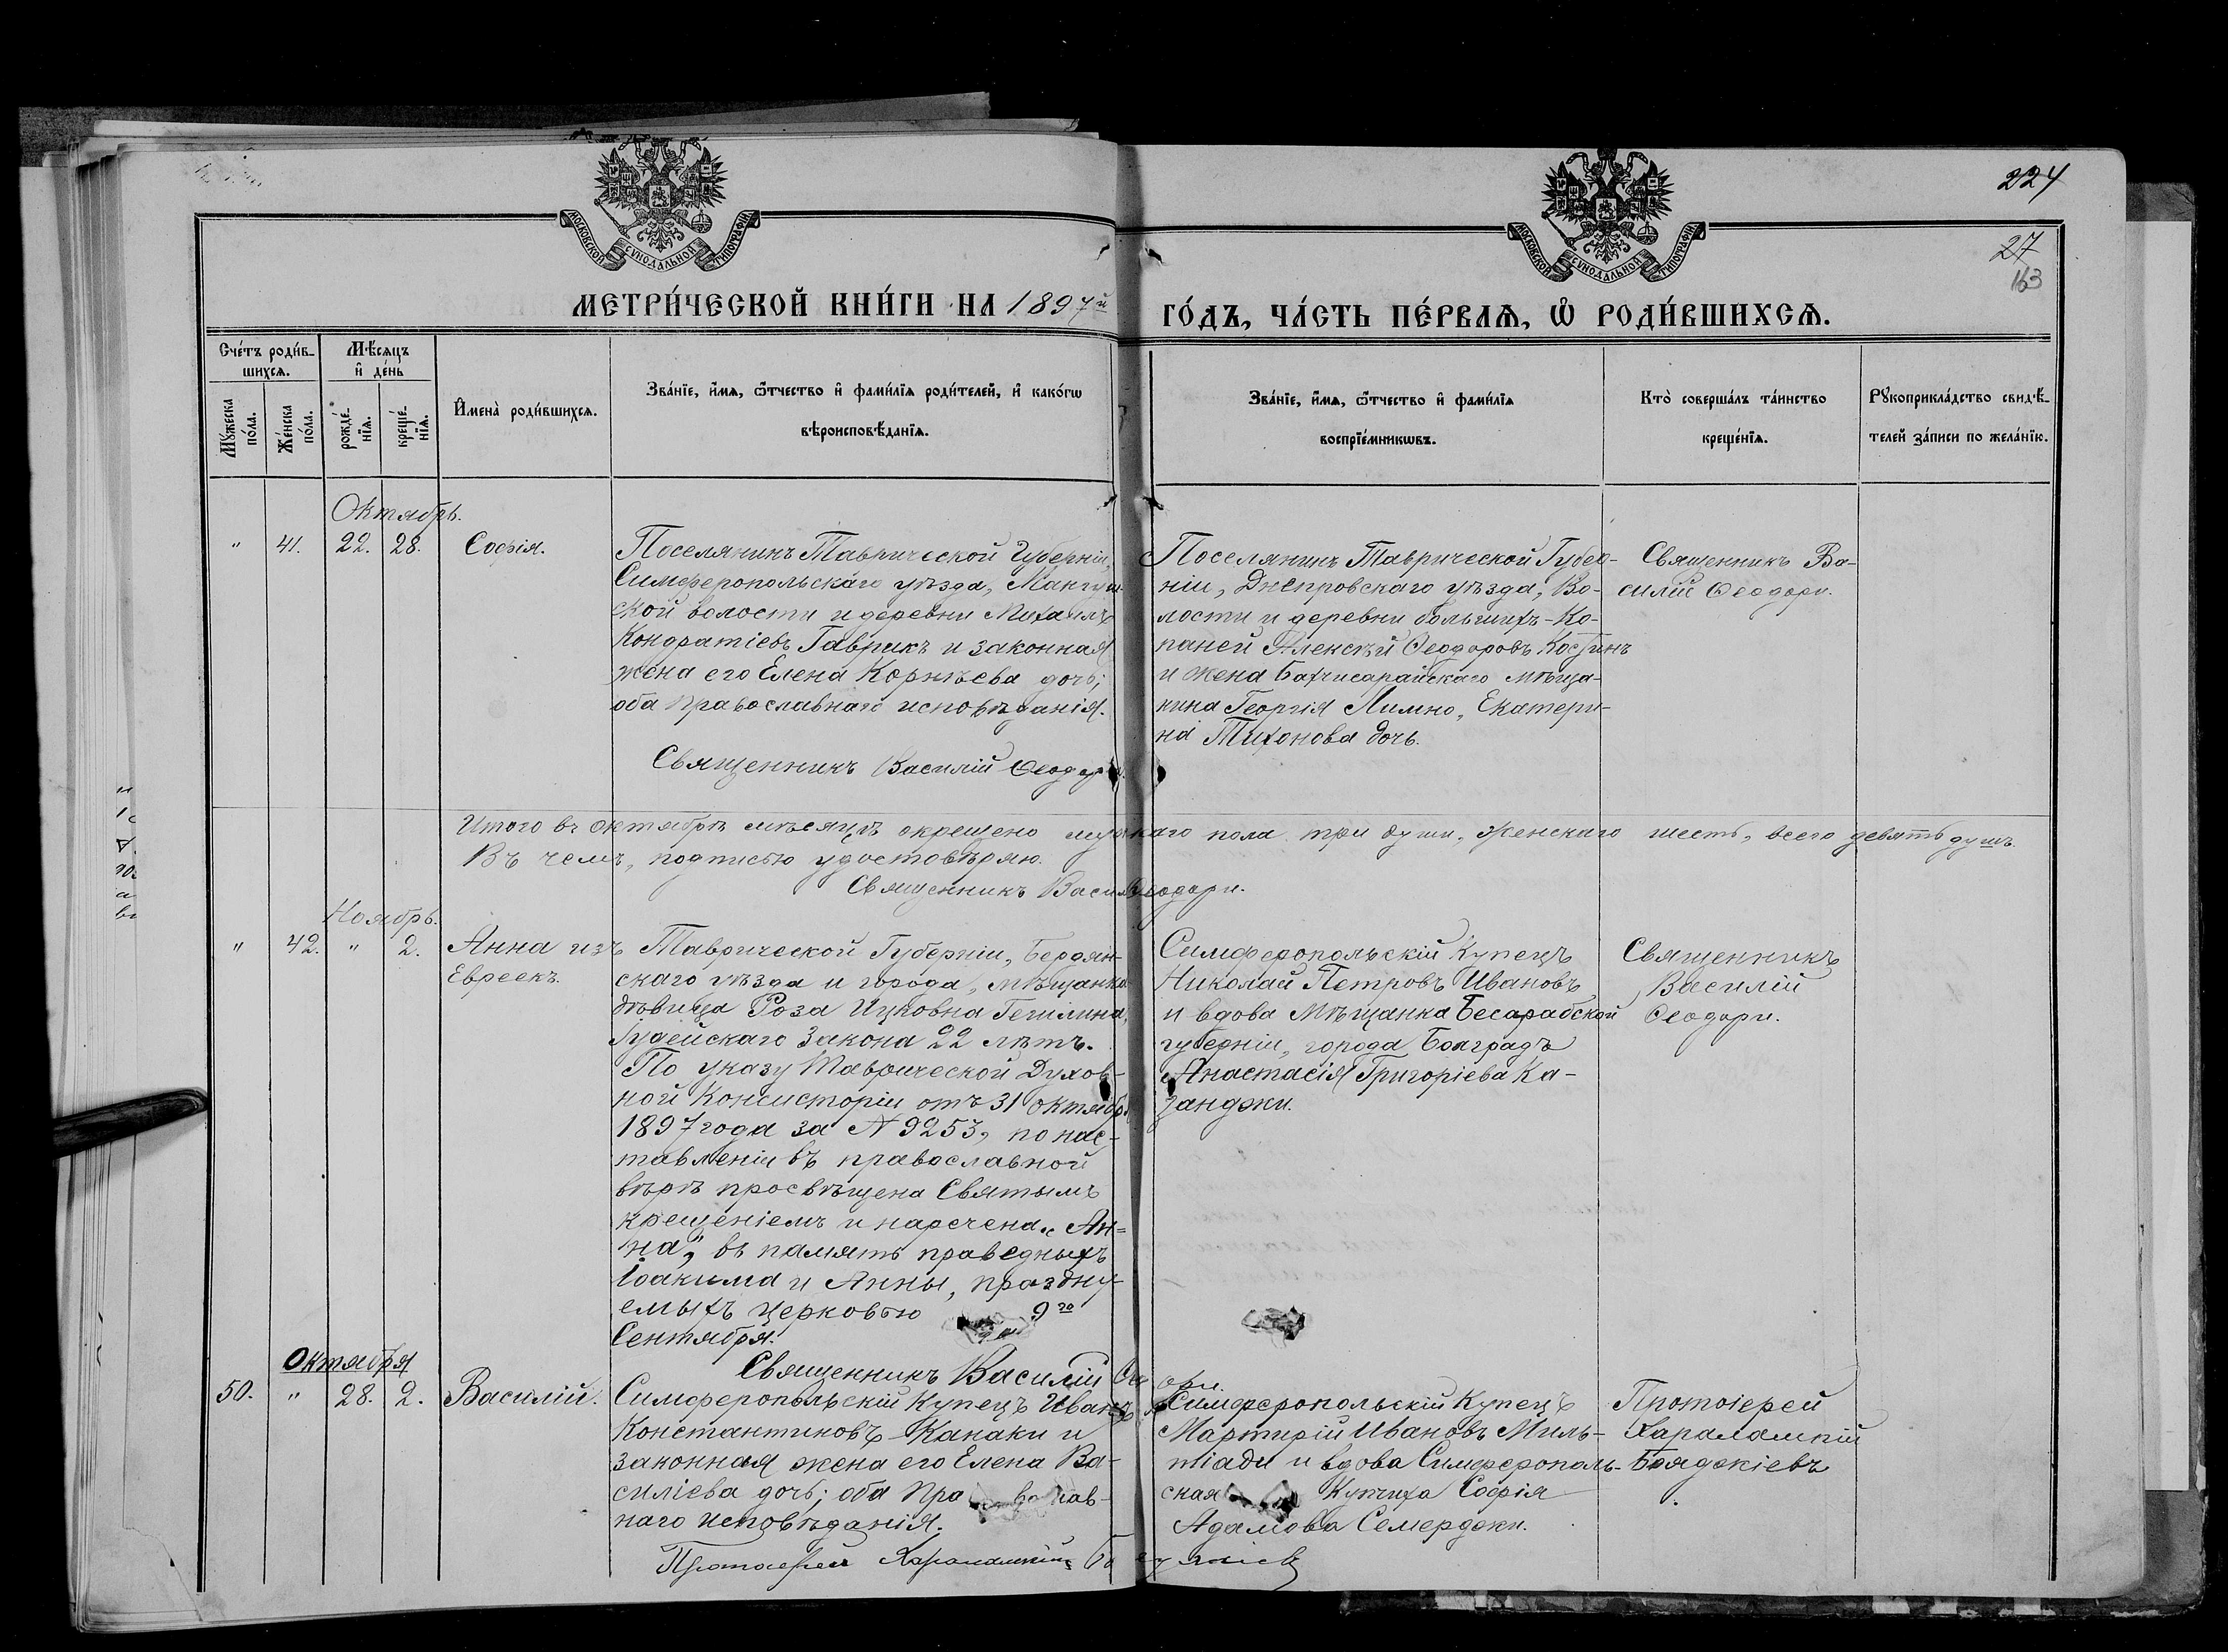 224
27
163
МОСКОВСКОЙ СѴНОДАЛЬНОЙ ТИПОГРАФІИ
МОСКОВСКОЙ СѴНОДАЛЬНОЙ ТИПОГРАФІИ
МЕТРИ́ЧЕСКОЙ КНИ́ГИ НА 1897й
ГО́ДЪ, ЧА́СТЬ ПЕ́РВАЯ, Ѡ РОДИ́ВШИХСЯ.
Сче́тъ роди́в-
шихся.
Мѣ́сяцъ
и де́нь
Мꙋ́жеска
по́ла.
Же́нска
по́ла.
рожде́-
нїя.
креще́-
нїя.
Имена̀ роди́вшихся.
Зва́нїе, и́мя, ѻ́тчество и фами́лїя роди́телей, и како́гѡ
вѣроисповѣ́данїя.
Зва́нїе, и́мя, ѻ́тчество и фами́лїя
воспрїе́мникѡвъ.
Кто̀ соверша́лъ та́инство
креще́нїя.
Рꙋкоприкла́дство свидѣ́-
телей за́писи по жела́нїю.
Октябрь.
" 41. 22. 28. Софія.
Поселянинъ Таврической Губерніи,
Симферопольскаго уѣзда, Мангуш-
ской волости и деревни Михаилъ
Кондратіевъ Гаврикъ и законная
жена его Елена Корнѣева дочь;
оба Православнаго исповѣданія.
Священникъ Василій Ѳеодори.
Поселянинъ Таврической Губер-
ніи, Днепровскаго уѣзда, Во-
лости и деревни большихъ-Ко-
паней Алексѣй Ѳеодоровъ Костинъ
и жена Бахчисарайскаго мѣща-
нина Георгія Лимно, Екатери-
на Тихонова дочь.
Священникъ Ва-
силій Ѳеодори.
Итого въ октябрѣ мѣсяцѣ окрещено мужскаго пола три души, женскаго шесть, всего девять душъ.
Въ чемъ, подписью удостовѣряю.
Священникъ Василій Ѳеодори.
Ноябрь.
" 42. " 2. Анна изъ
Евреекъ.
Таврической Губерніи, Бердян-
скаго уѣзда и города, мѣщанка
дѣвица Роза Ицковна Гешлина,
Іудейскаго Закона 22 лѣтъ.
По указу Таврической Духов-
ной Консисторіи отъ 31 октября
1897 года за N 9253, по нас-
тавленіи въ православной
вѣрѣ просвѣщена Святымъ
крещеніемъ и наречена „Ан-
на", въ память праведныхъ
Іоакима и Анны, праздну-
емыхъ церковью 9го
Сентября.
Священникъ Василій Ѳеодори.
Симферопольскій Купецъ
Николай Петровъ Ивановъ
и вдова Мѣщанка Бесарабской
губерніи, города Болградъ
Анастасія Григоріева Ка-
занджи.
Священникъ
Василій
Ѳеодори.
Октября
50. " 28. 2. Василій.
Симферопольскій Купецъ Иванъ
Константиновъ Канаки и
законная жена его Елена Ва-
силіева дочь; оба Православ-
наго исповѣданія.
Протоіерей Харалампій
Симферопольскій Купецъ
Мартирій Ивановъ Миль-
тіади и вдова Симферополь-
ская Купчиха Софія
Адамова Семерджи.
Протоіерей
Харалампій
Бояджіевъ